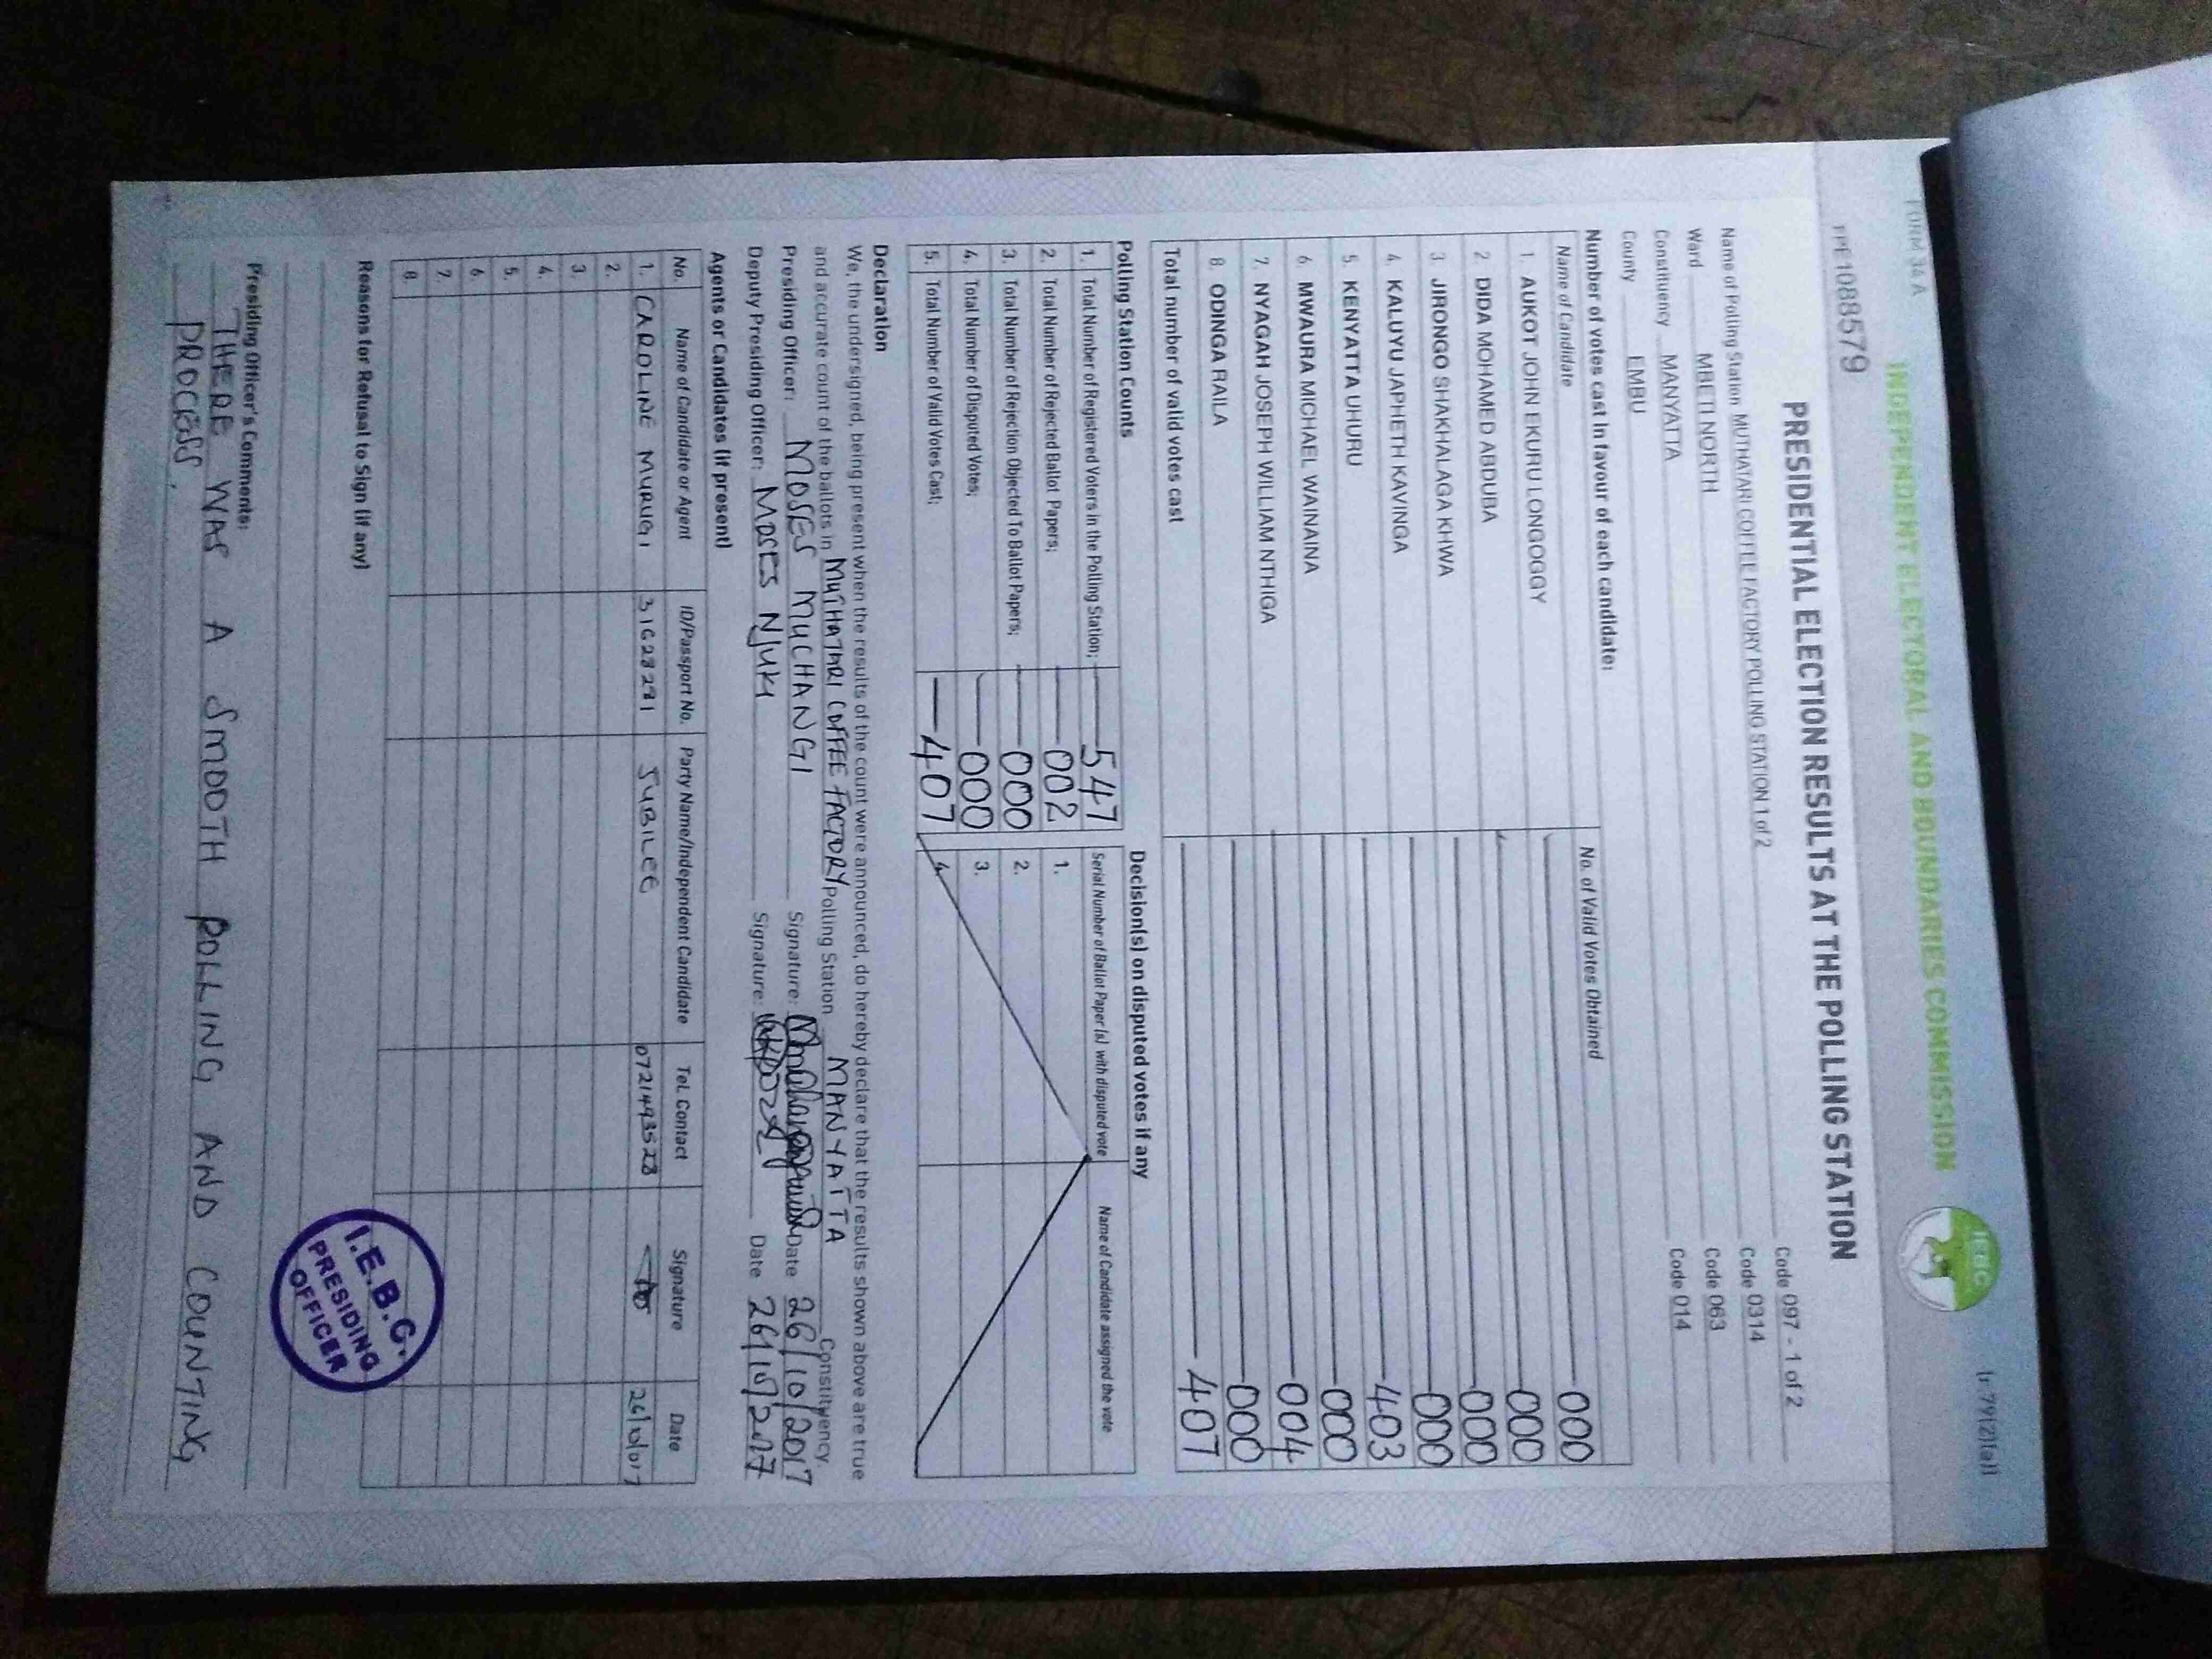 FORM 34 A
(r 79(2)(a))
INDEPENDENT ELECTORAL AND BOUNDARIES COMMISSION
IEBC
PPE1088579
PRESIDENTIAL ELECTION RESULTS AT THE POLLING STATION
Name of Polling Station MUTHATARI COFFEE FACTORY POLLING STATION 1 of 2 Code 097 - 1 of 2
Ward MBETI NORTH Code 0314
Constituency MANYATTA Code 063
County EMBU Code 014
Number of votes cast in favour of each candidate:
Name of Candidate No. of Valid Votes Obtained
1. AUKOT JOHN EKURU LONGOGGY 000
2. DIDA MOHAMED ABDUBA 000
3. JIRONGO SHAKHALAGA KHWA 000
4. KALUYU JAPHETH KAVINGA 000
5. KENYATTA UHURU 403
6. MWAURA MICHAEL WAINAINA 000
7. NYAGAH JOSEPH WILLIAM NTHIGA 004
8. ODINGA RAILA 000
Total number of valid votes cast 407
Polling Station Counts
1. Total Number of Registered Voters in the Polling Station; 547
2. Total Number of Rejected Ballot Papers; 002
3. Total Number of Rejection Objected To Ballot Papers; 000
4. Total Number of Disputed Votes; 000
5. Total Number of Valid Votes Cast; 407
Decision(s) on disputed votes if any
Serial Number of Ballot Paper (s) with disputed vote Name of Candidate assigned the vote
1.
2.
3.
4.
Declaration
We, the undersigned, being present when the results of the count were announced, do hereby declare that the results shown above are true
and accurate count of the ballots in MUTHATARI COFFEE FACTORY Polling Station MANYATTA Constituency
Presiding Officer: MOSES MUCHANGI Signature: Date 26/10/2017
Deputy Presiding Officer: MOSES NJUKI Signature: Date 26/10/2017
Agents or Candidates (if present)
No. Name of Candidate or Agent ID/Passport No. Party Name/Independent Candidate Tel. Contact Signature Date
1. CAROLINE MURUGI 31628291 JUBILEE 0721493528 26/10/017
2.
3.
4.
5.
6.
7.
8.
Reasons for Refusal to Sign (if any)
I.E.B.C.
PRESIDING
OFFICER
Presiding Officer's Comments:
THERE WAS A SMOOTH POLLING AND COUNTING
PROCESS.